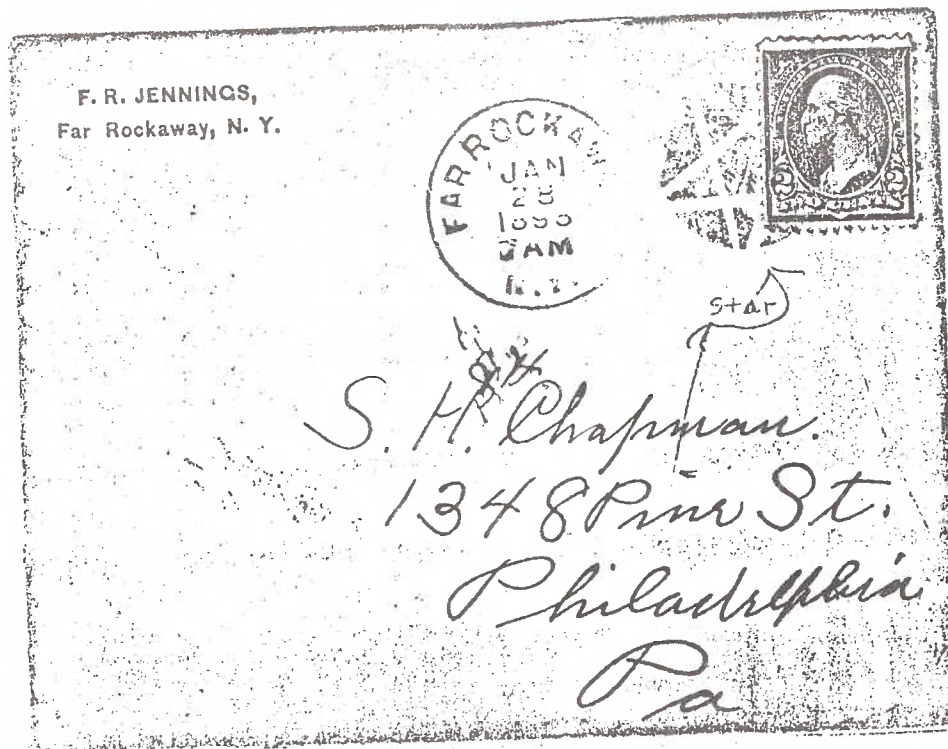 F. R. JENNINGS,
Far Rockaway, N. Y.
FAR ROCKAW
JAN
28
AM
N.Y.
2 2
star
S. H. Chapman.
1348 Pine St.
Philadelphia
Pa